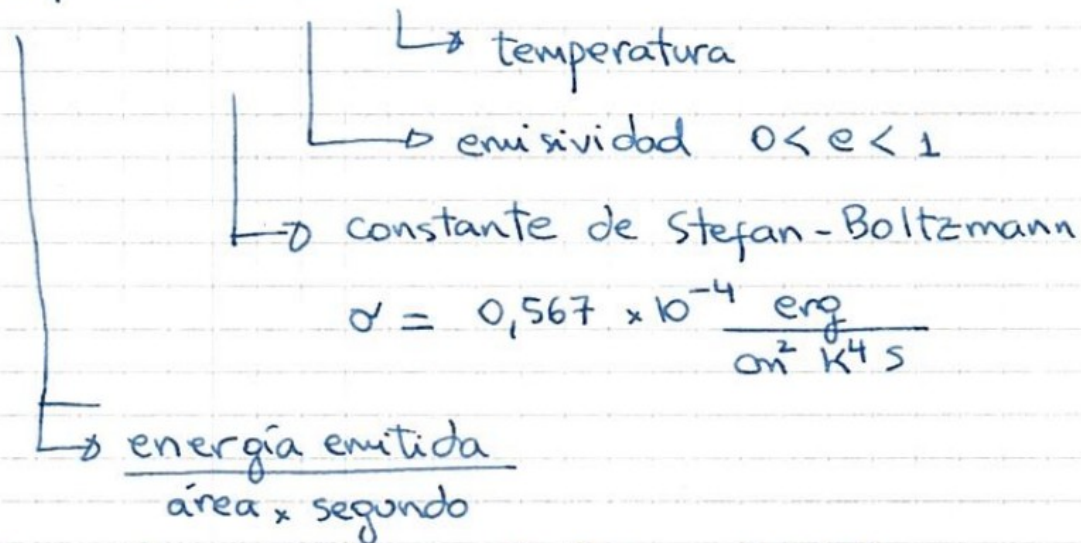 temperatura
emisividad 0 < e < 1
constante de Stefan-Boltzmann
σ = 0,567 × 10⁻⁴ erg / cm² K⁴ s
energía emitida
área × segundo